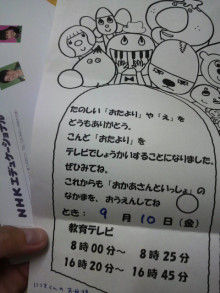 NHKエデュケーショナル
たのしい「おたより」や「え」を
どうもありがとう。
こんど「おたより」を
テレビでしょうかいすることになりました。
ぜひみてね。
これからも「おかあさんといっしょ」の
なかまを、おうえんしてね
とき：9月10日(金)
教育テレビ
8時00分〜8時25分
16時20分〜16時45分